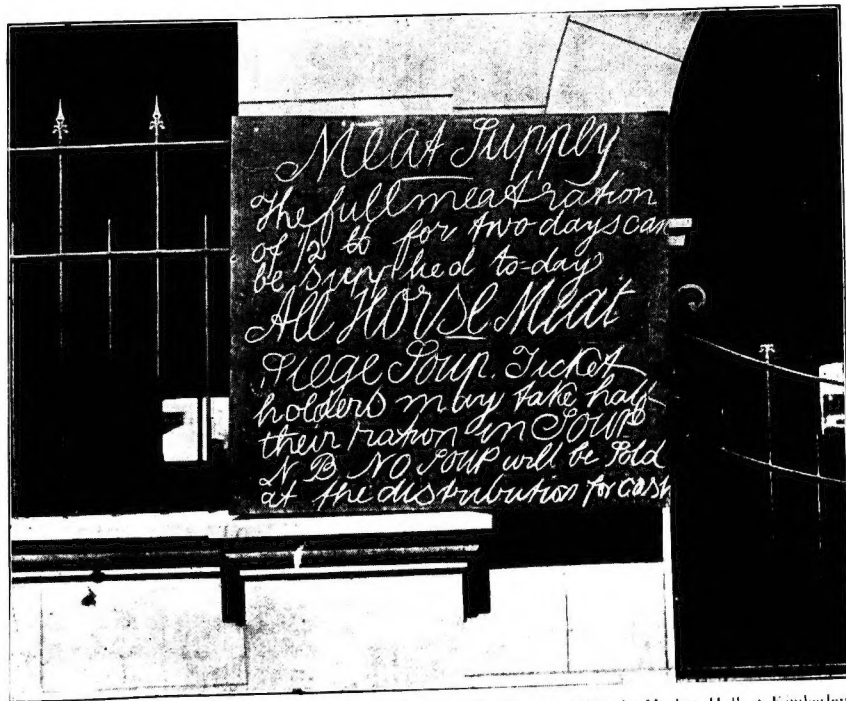 Meat Supply
The full meat ration
of 1/2 lb for two days can
be supplied to-day
All Horse Meat
Siege Soup. Ticket
holders may take half
their ration in SOUP
N B. NO SOUP will be Sold
at the distribution for cash
Market Hall at Kimberley